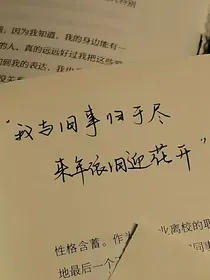 因为我知道，我的身边能有一
的人，真的远远好过我把这些
到我的表达，我也
"我与旧事归于尽
来年依旧迎花开"
性格含蓄。作为
业离校的
地最后一个